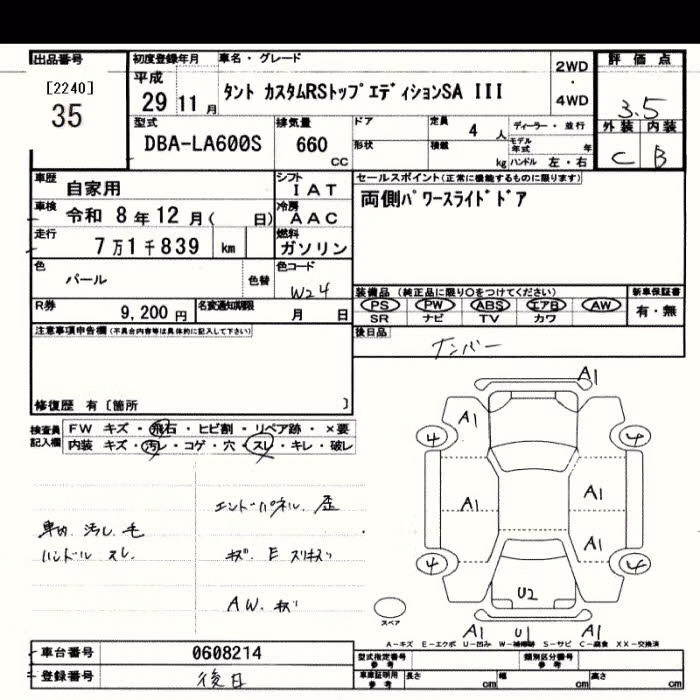 出品番号
[2240]
35
初度登録年月
平成
29 11 月
車名・グレード
タント カスタムRSトップエディションSA III
2WD
・
4WD
評価点
3.5
外装 内装
C B
型式
DBA-LA600S
排気量
660
CC
ドア
形状
定員
4 人
積載
kg
ディーラー・並行
モデル年式 年
ハンドル 左・右
車歴
自家用
車検
令和 8 年 12 月( 日)
走行
7 万 1 千 839 km
シフト
I A T
冷房
A A C
燃料
ガソリン
色
パール
色替
色コード
W24
R券
9,200 円
名変通知期限
月 日
セールスポイント(正常に機能するものに限ります)
両側パワースライドドア
装備品(純正品に限り○をつけてください)
PS PW ABS エアB AW
SR ナビ TV カワ
新車保証書
有・無
後日品
ナンバー
注意事項申告欄(不具合内容等は具体的に記入して下さい)
修復歴 有〔箇所 〕
検査員記入欄
FW キズ・飛石・ヒビ割・リペア跡・×要
内装 キズ・汚レ・コゲ・穴・スレ・キレ・破レ
車内 汚レ 毛
ハンドル スレ
エンドパネル 歪
キズ E スリキズ
AW キズ
A1
A1
4
4
A1
A1
A1
4
4
U2
A1 U1 A1
スペア
A−キズ E−エクボ U−凹み W−補修跡 S−サビ C−腐食 XX−交換済
車台番号
0608214
登録番号
後日
型式指定番号
参考
類別区分番号
参考
車庫証明用
参考
長さ cm
幅 cm
高さ cm